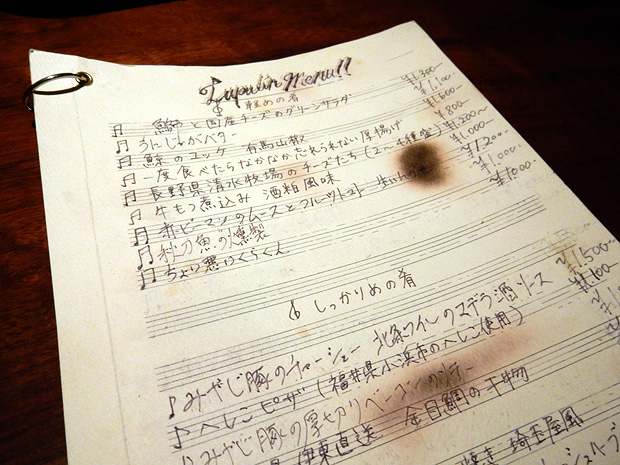 Lupulin Menu!!
軽めの肴
と国産チーズのグリーンサラダ ¥1,300~
うんしゅがバター ¥1,100-
鯨のユッケ 有馬山椒 ¥1,600~
一度食べたらなかなか忘れられない厚揚げ ¥800~
長野県清水牧場のチーズたち(2~4種盛) ¥1,200~
牛もつ煮込み 酒粕風味 ¥1,000~
赤ピーマンのムースとフルーツトマト ¥1,200~
秋刀魚の燻製 ¥1,000-
ちょり悪いくらくん ¥1000-
しっかりめの肴
みやじ豚のチャーシュー 北条ワインのマデラ酒ソース ¥1,500~
へしこピザ(福井県小浜市のへしこ使用) ¥1,100-
みやじ豚の厚切りベーコン
伊東直送 金目鯛の干物
焼き 埼玉屋風